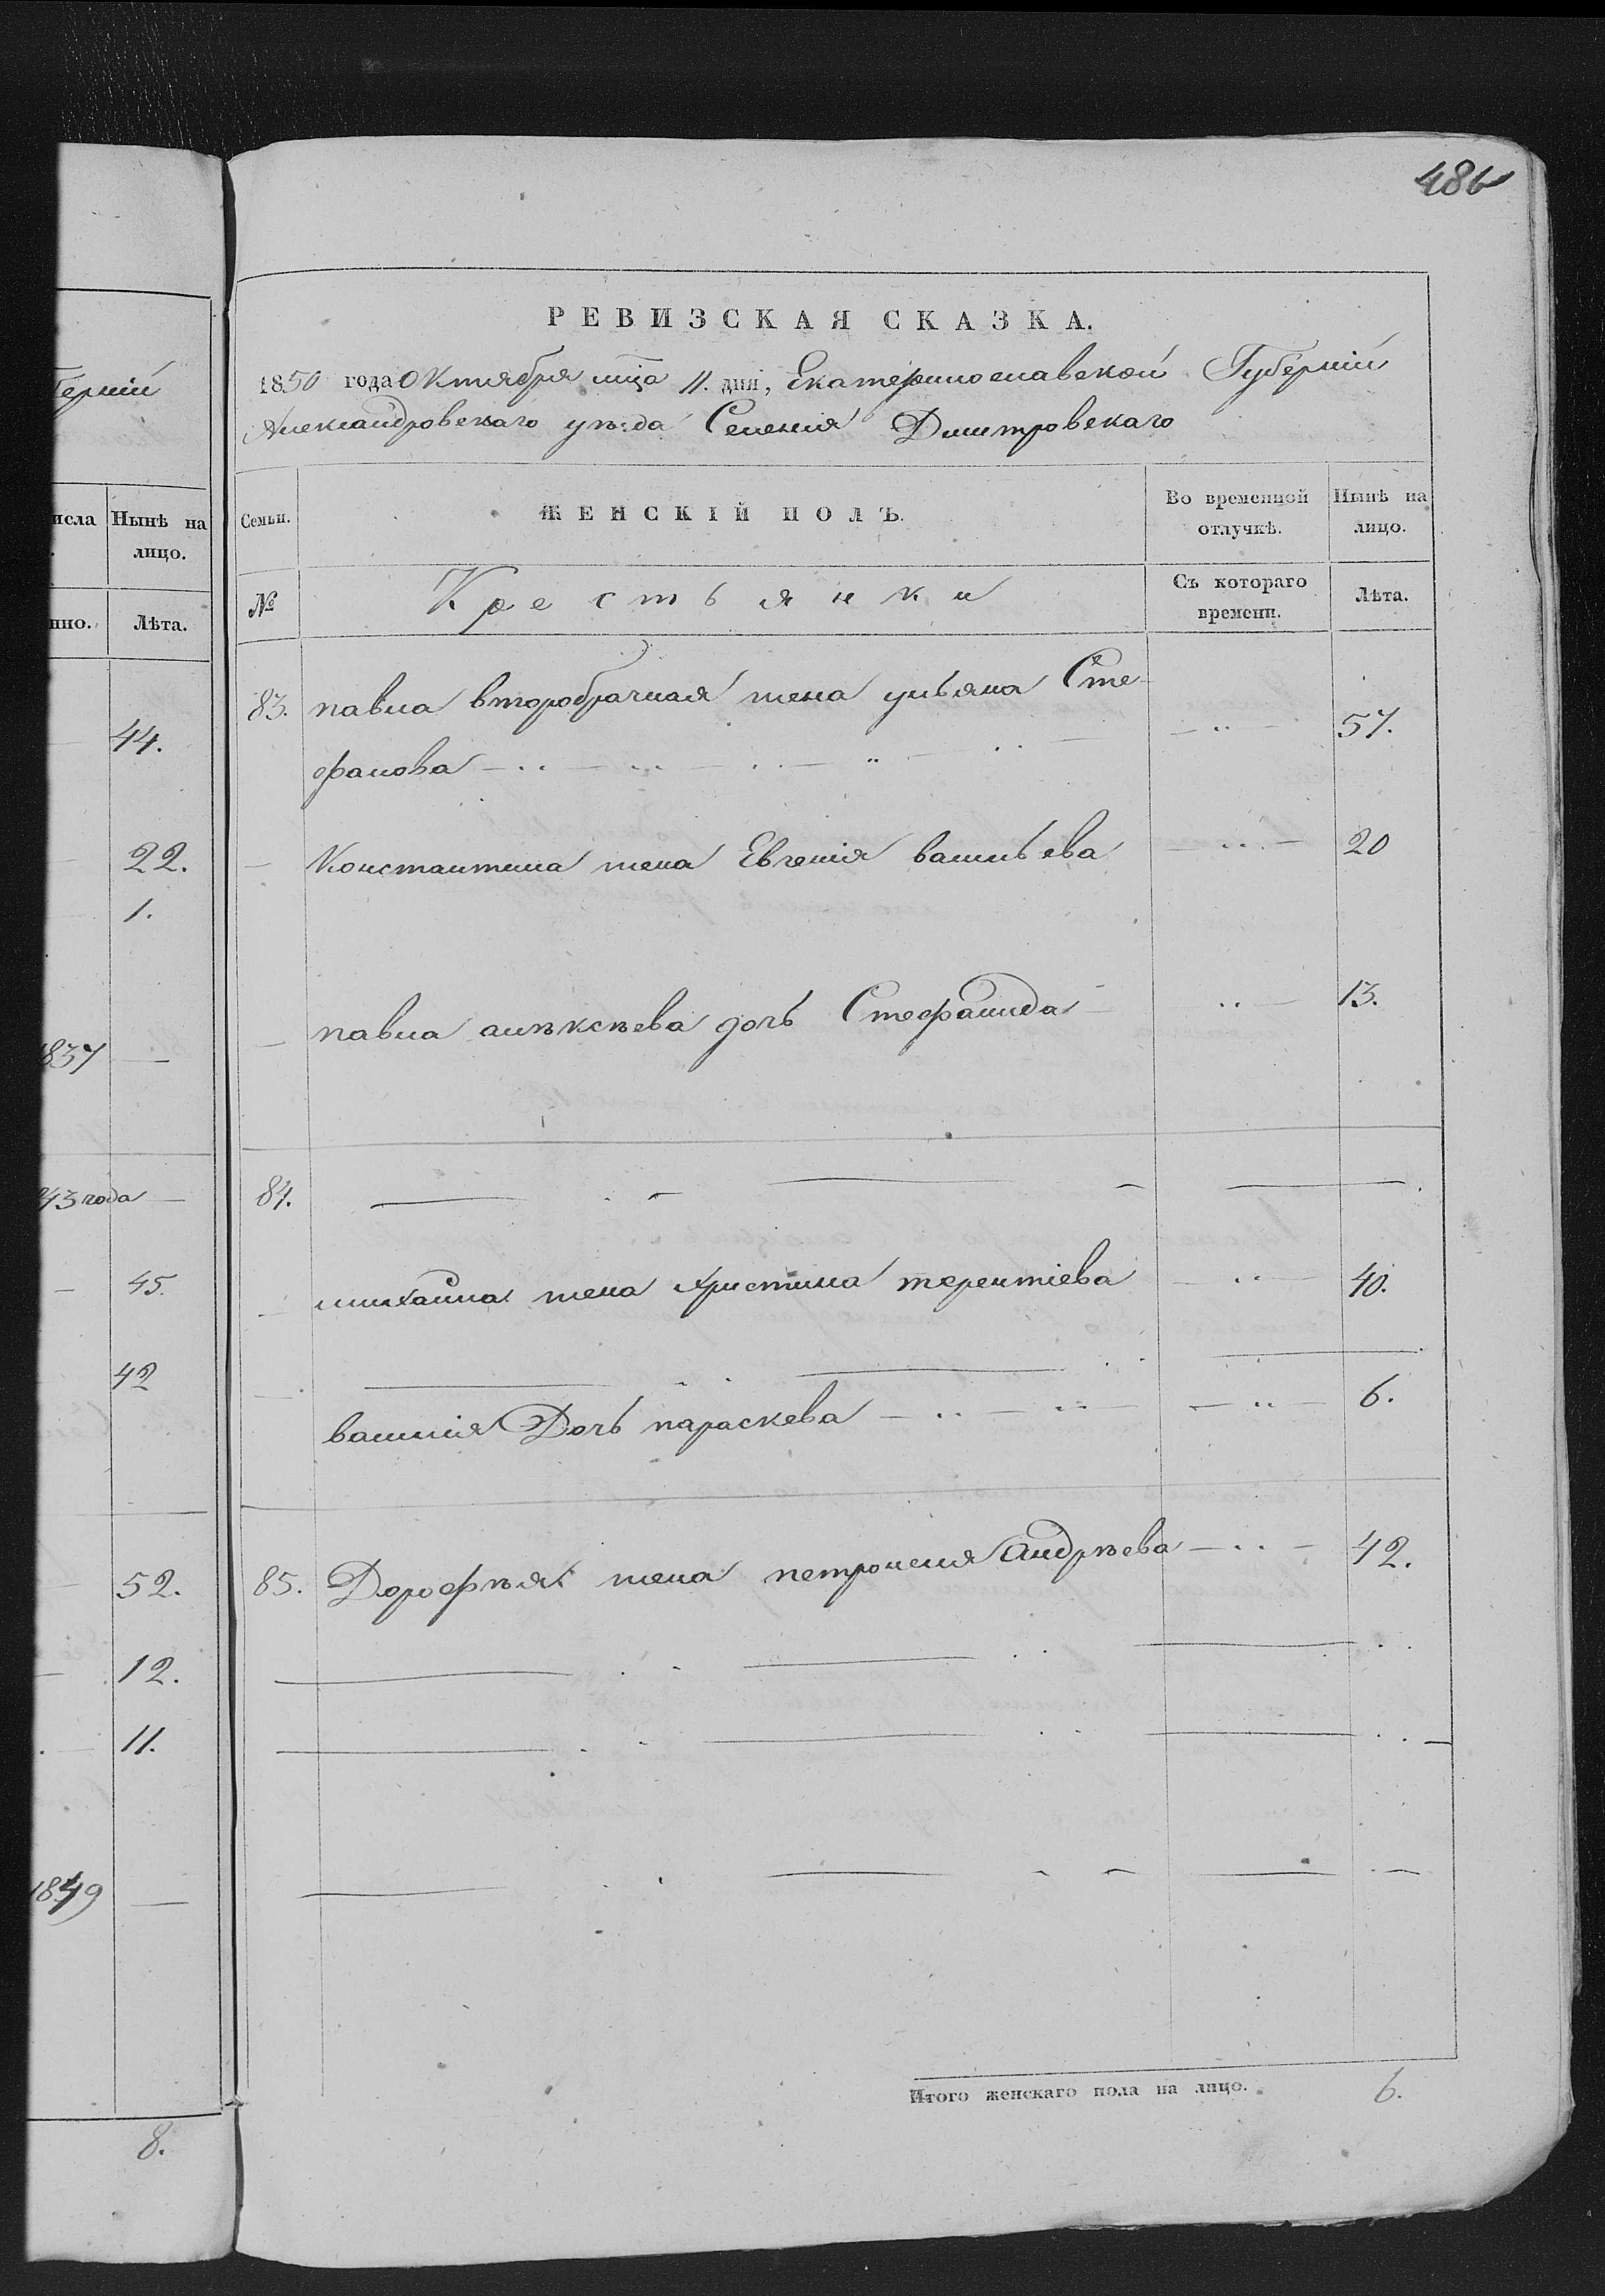 486
РЕВИЗСКАЯ СКАЗКА.
1850 года Октября мца 11. дня, Екатеринославской Губерніи
Александровскаго уѣзда Селенія Дмитровскаго
Семьи.
ЖЕНСКІЙ ПОЛЪ.
Во временной отлучкѣ.
Нынѣ на лицо.
№
Крестьянки
Съ котораго времени.
Лѣта.
83. павла второбрачная жена ульяна Сте-
фанова 57.
Константина жена Евгенія васильева 20
павла алѣксѣева дочь Стефанида 13.
84.
михайла жена христина терентіева 40.
василія Дочь параскева 6.
85. Дорофѣя жена петронеля андрѣева 42.
Итого женскаго пола на лицо. 6.
берніи
исла
Нынѣ на
лицо.
нно.
Лѣта.
44.
22.
1.
1837
43 года
45.
42
52.
12.
11.
1849
8.